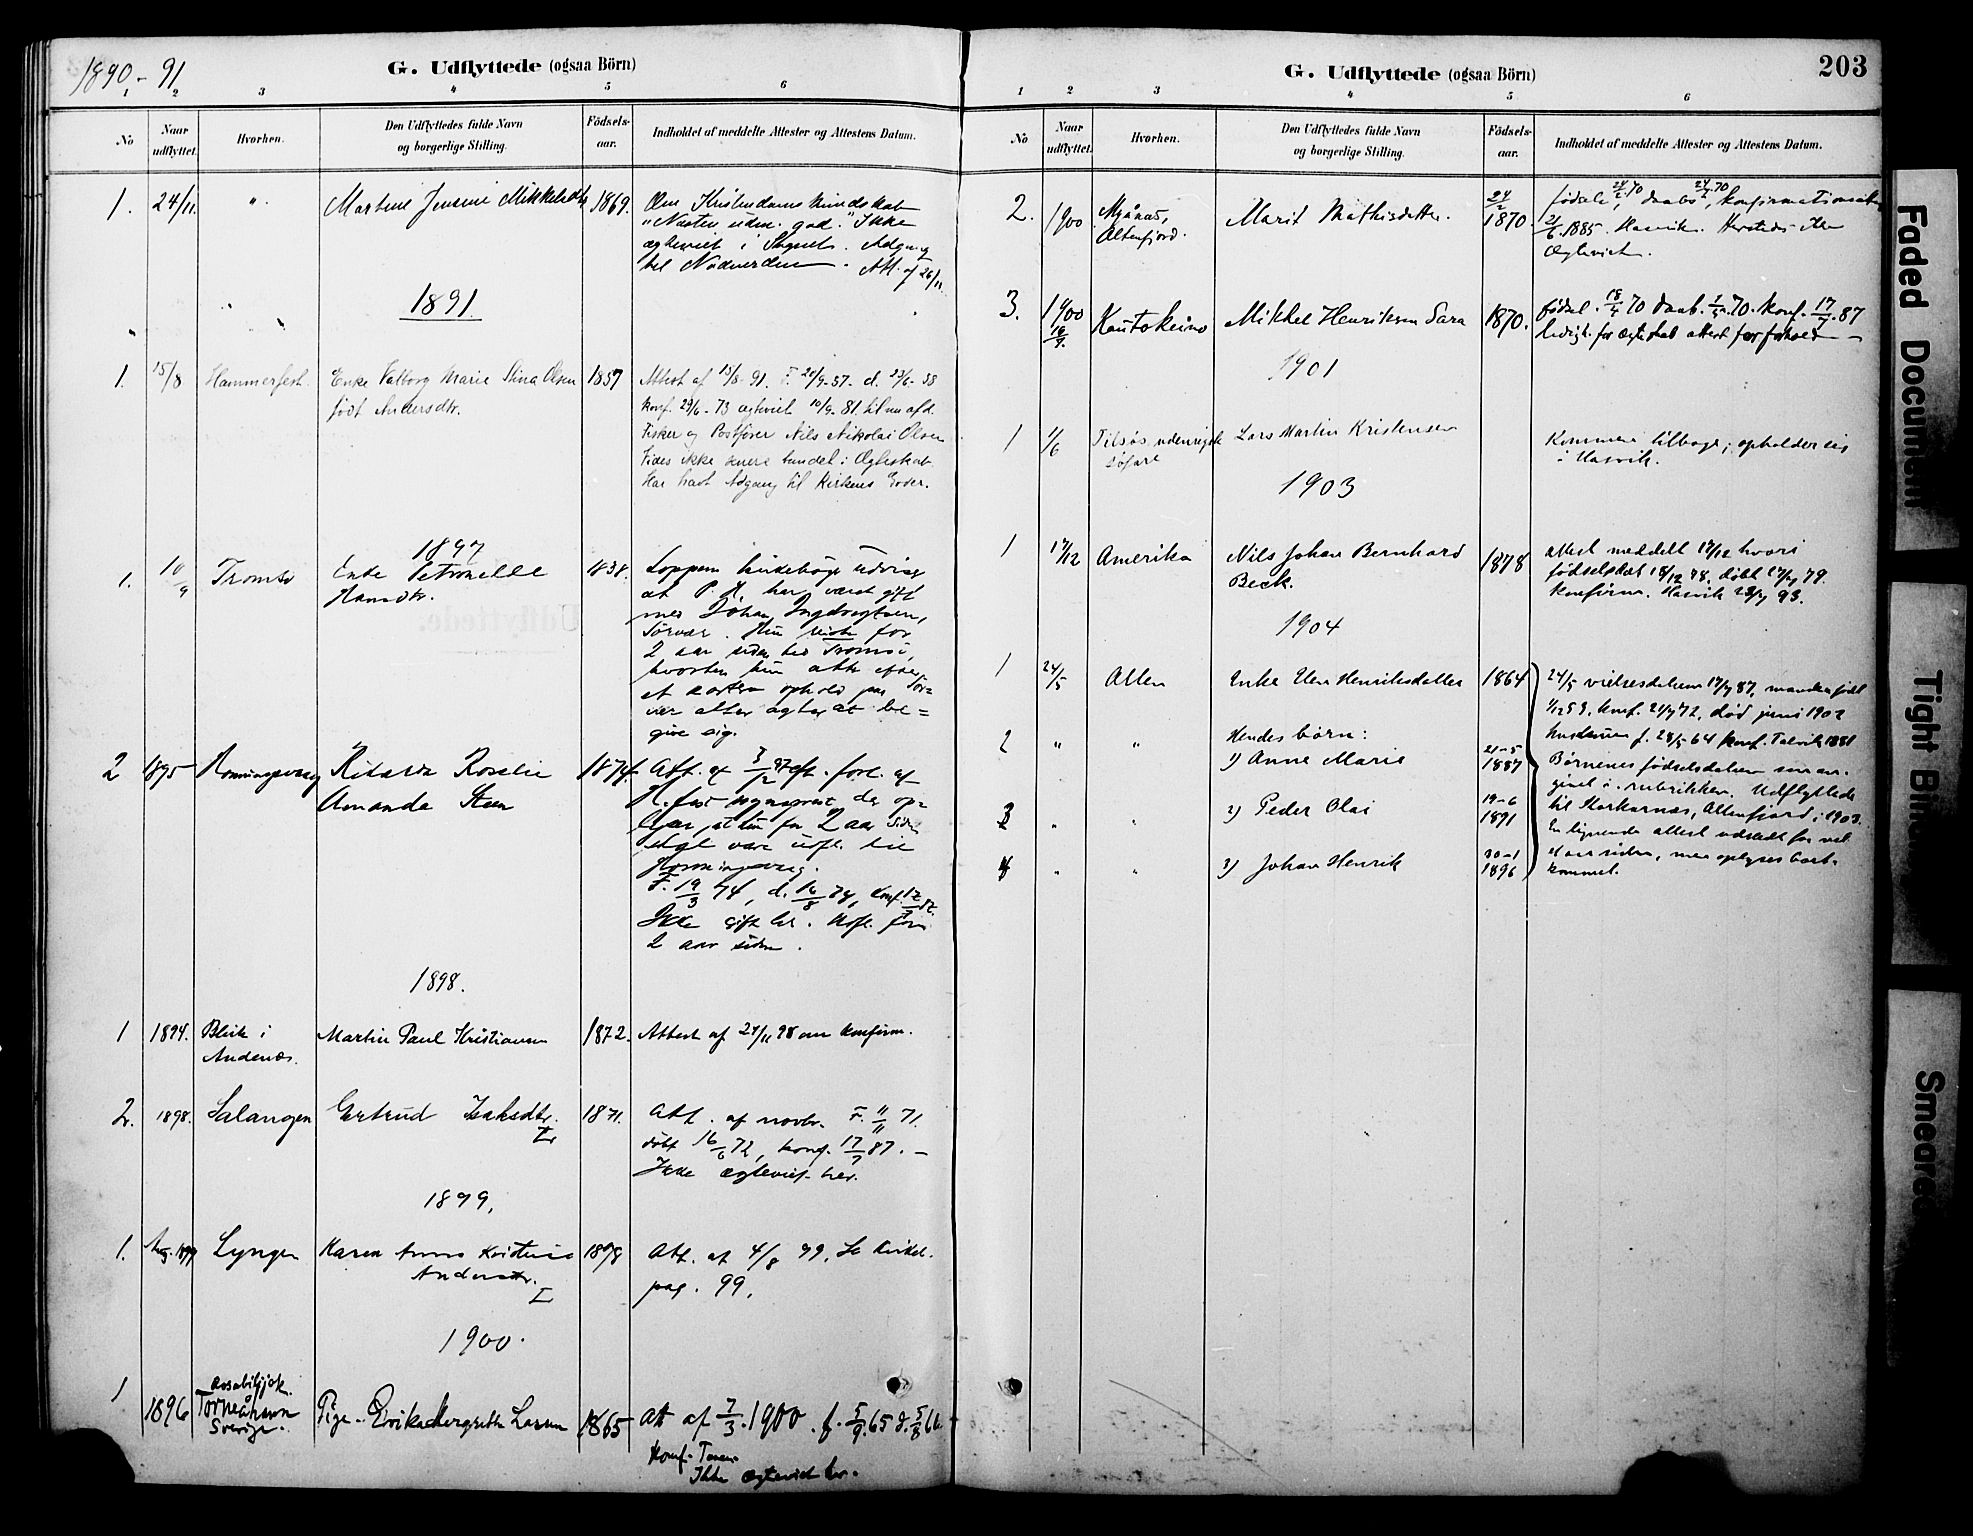 1890-91
G. Udflyttede (ogsaa Börn)
1 2 3 4 5 6
No
Naar
udflyttet.
Hvorhen.
Den Udflyttedes fulde Navn
og borgerlige Stilling.
Fødsels-
aar.
Indholdet af meddelte Attester og Attestens Datum.
1. 24/11. " Martine Jensine Mikkelsdtr 1869. Om Kristendomskundskab
"Næsten udm. god." Ikke
ægteviet i Sognet. Adgang
til Nadverden. Att. af 26/11.
1891
1. 15/8 Hammerfest. Enke Valborg Marie Stina Olsen 1857 Attest af 15/8-91. F. 20/9-57- d. 23/6-58
født Andersdtr. konf. 29/6-73 ægteviet 10/9-81. til nu afd.
Fisker og Postfører Nils Nikolai Olsen
Vides ikke senere bundet i Ægteskab.
Har havt Adgang til Kirkens Goder.
1897
1. 10/9 Tromsø Enke Petronelle 1838. Loppens kirkebøger udviser
Hansdtr. at P. H. har været gift
med Johan
Sørvær. Hun reiste for
2 aar siden til Tromsø,
hvorhen hun atter efter
et kortere ophold paa Sør=
vær atter agter at be=
give sig.
2 1895 Honningsvaag Rikarda Roselie 1874. Att. af 3/12 97 eft. forl. af
Amanda Steen H.fest sogneprest, der op=
lyser, at hun for 2 aar siden
skal være udfl. til
Honningsvaag.
F. 19/3 74, d. 16/8 74, konf.
Ikke gift her. Udfl. for
2 aar siden.
1898.
1 1894. Bleik i Martin Paul Kristiansen 1872. Attest af 24/11 98 om konfirm.
Andenæs.
2. 1898. Salangen Gertrud Isaksdtr. 1871. Att. af novbr. F. 11/11 71.
døbt 16/6 72, konf. 17/7 87. -
Ikke ægteviet her.
1899,
1. Aug. 1899 Lyngen Karen Anna Kristine 1878 Att. af 4/8 99, Se kirkeb.
Andersdtr. pag. 99,
1900.
1 1896 Torneå Pige Erika Margrethe Larsen 1865 Att af 7/3.1900. f. 5/9.65 d. 5/8 66.
Sverige. Konf.
Ikke ægteviet her.
G. Udflyttede (ogsaa Börn)
203
1 2 3 4 5 6
No
Naar
udflyttet.
Hvorhen.
Den Udflyttedes fulde Navn
og borgerlige Stilling.
Fødsels-
aar.
Indholdet af meddelte Attester og Attestens Datum.
2. 1900 Altenfjord. Marit Mathisdatter. 24/2 1870. fødsel, 24/2 70 daabs, konfirmations
21/6.1885. Hasvik.
Ægteviet.
3. 1900 Kautokeino Mikkel Henriksen Sara 1870. fødsel. 18/4 70 daab. 70. konf. 17/7.87
ledigh. for ægteskab attest for forhold -
1901
1 1/6 Tilsøs udenrigsk Lars Martin Kristensen Kommen tilbage; opholder sig
søfart i Hasvik.
1903
1 17/12 Amerika Nils Johan Bernhard 1878 attest meddelt 17/12 hvori
Beck. fødselsdat 18/12 78, døbt 79.
konfirm. Hasvik 23/7 93.
1904
1 24/5 Alten Enke Elen Henriksdatter 1864 24/5 vielsesdatum 17/7 87, manden født
1/12 59, konf. 21/7 72, død juni 1902
2 " " Hendes börn: hustruen f. 28/5 64 konf. Talvik 1881
1) Anne Marie 21-5 1887 Børnenes fødselsdatum som an-
givet i rubrikken. Udflyttede
3 " " 2) Peder Olai 19-6 1891 til Storkarnæs, Altenfjord i 1903.
En lignende attest udstedt for vel
4 " " 3) Johan Henrik 30-1 1896 et aar siden, men oplyses bort-
kommet.
Faded Document
Tight Bin
Smeared